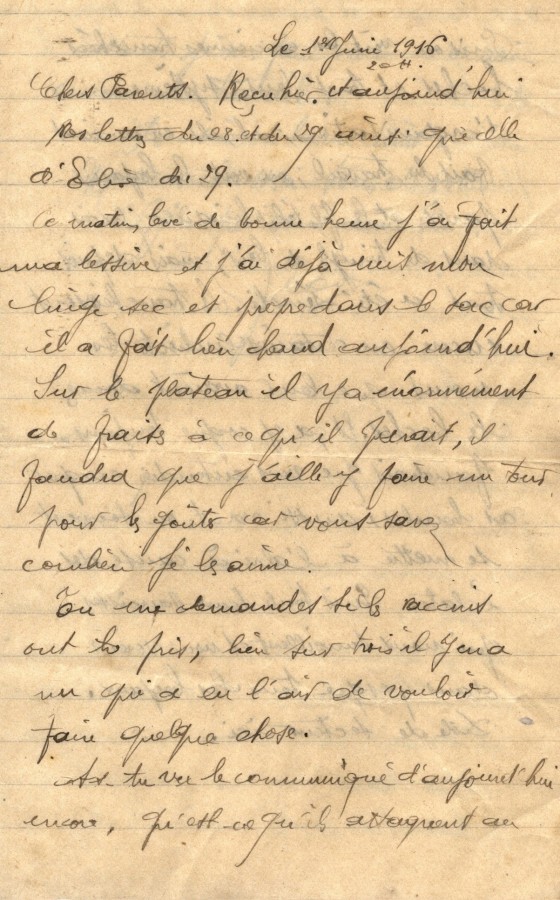 Le 1er Juin 1916
20 H.
Chers Parents. Reçu hier et aujourd'hui
vos lettres du 28 et du 29 ainsi que celle
d' du 29.
Ce matin, levé de bonne heure j'ai fait
ma lessive et j'ai déjà mis mon
linge sec et propre dans le sac car
il a fait bien chaud aujourd'hui.
Sur le plateau il y a énormément
de fraises à ce qu'il parait, il
faudra que j'aille y faire un tour
pour les goûter car vous savez
combien je les aime.
Tu me demandes si les vaccins
ont pris, bien sur trois il y en a
un qui a eu l'air de vouloir
faire quelque chose.
As-tu vu le communiqué d'aujourd'hui
encore, qu'est-ce qu'ils attaquent au